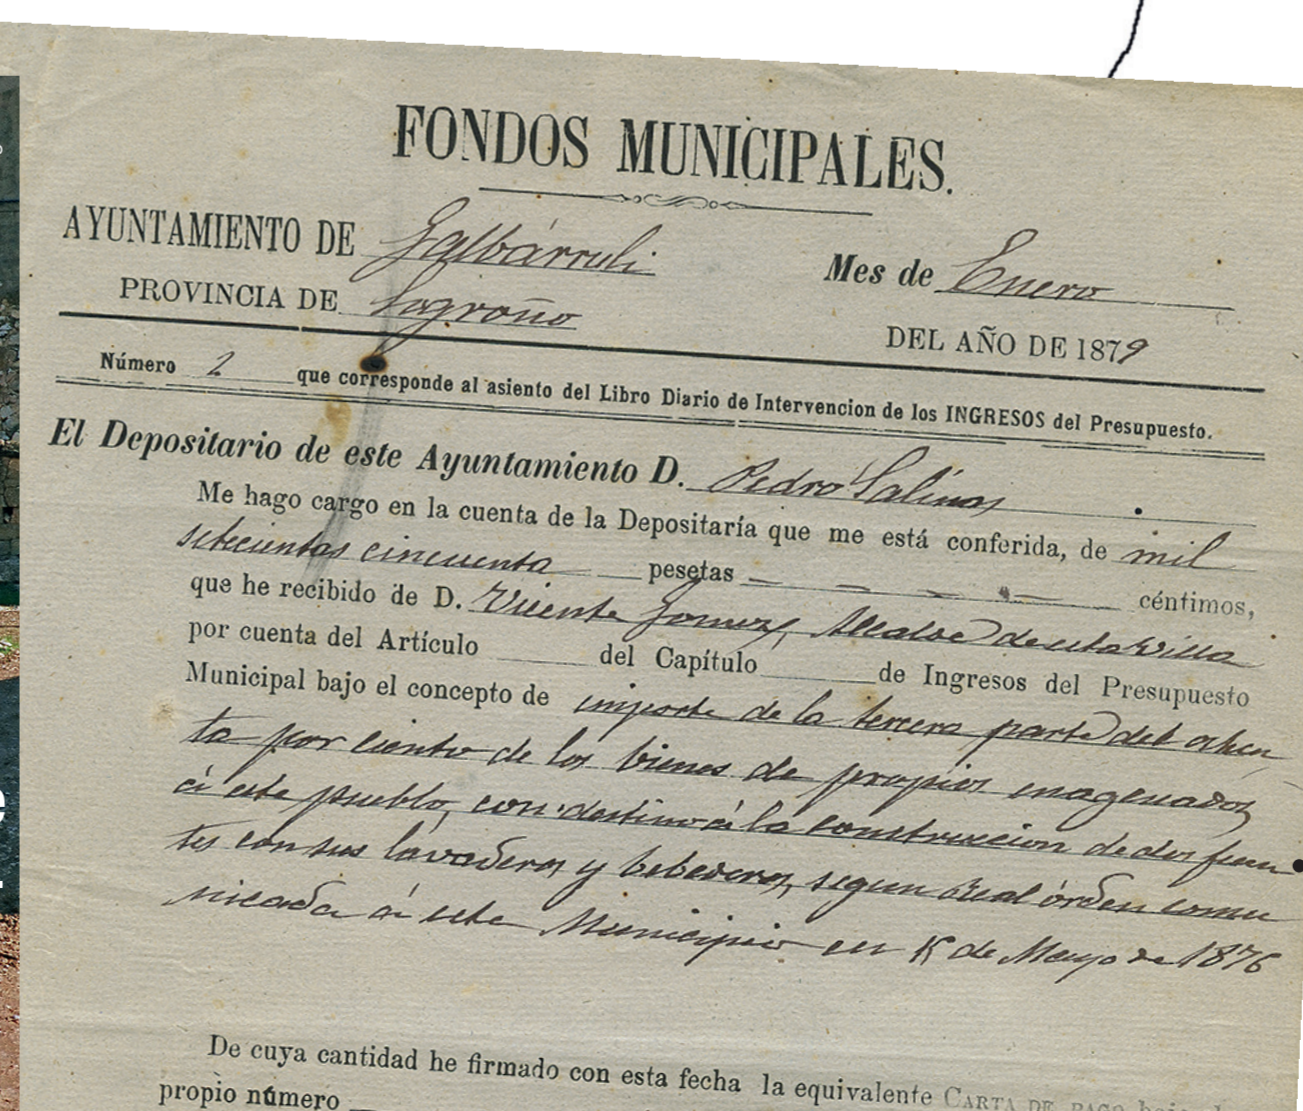 FONDOS MUNICIPALES.
AYUNTAMIENTO DE Galbárruli
Mes de Enero
PROVINCIA DE Logroño
DEL AÑO DE 1879
Número 2 que corresponde al asiento del Libro Diario de Intervencion de los INGRESOS del Presupuesto.
El Depositario de este Ayuntamiento D. Pedro Salinas
Me hago cargo en la cuenta de la Depositaría que me está conferida, de mil
setecientas cincuenta pesetas céntimos,
que he recibido de D. Vicente Gomez, Alcalde de esta Villa
por cuenta del Artículo del Capítulo de Ingresos del Presupuesto
Municipal bajo el concepto de importe de la tercera parte del ochen
ta por ciento de los bienes de propios enagenados
á este pueblo, con destino á la construccion de dos fuen
tes con sus lavaderos y bebederos, segun Real órden comu
nicada á este Municipio en de Mayo de 1876
De cuya cantidad he firmado con esta fecha la equivalente CARTA DE PAGO bajo
propio número